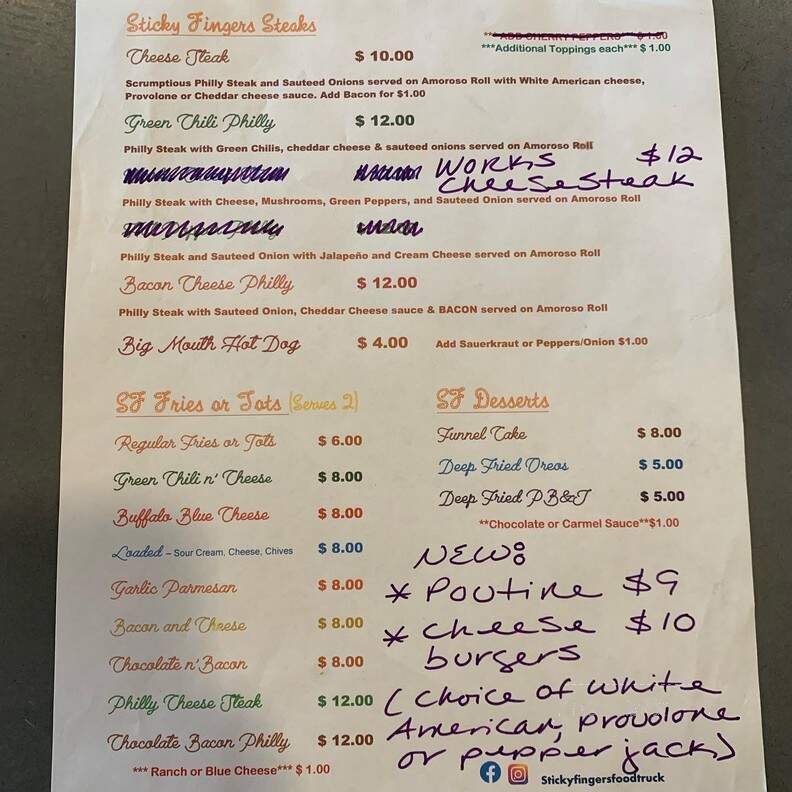 Sticky Fingers Steaks
***Additional Toppings each*** $ 1.00
Cheese Steak $ 10.00
Scrumptious Philly Steak and Sauteed Onions served on Amoroso Roll with White American cheese,
Provolone or Cheddar cheese sauce. Add Bacon for $1.00
Green Chili Philly $ 12.00
Philly Steak with Green Chilis, cheddar cheese & sauteed onions served on Amoroso Roll
WORKS $12
CheeseSteak
Philly Steak with Cheese, Mushrooms, Green Peppers, and Sauteed Onion served on Amoroso Roll
Philly Steak and Sauteed Onion with Jalapeño and Cream Cheese served on Amoroso Roll
Bacon Cheese Philly $ 12.00
Philly Steak with Sauteed Onion, Cheddar Cheese sauce & BACON served on Amoroso Roll
Big Mouth Hot Dog $ 4.00 Add Sauerkraut or Peppers/Onion $1.00
SF Fries or Tots (Serves 2)
Regular Fries or Tots $ 6.00
Green Chili n' Cheese $ 8.00
Buffalo Blue Cheese $ 8.00
Loaded – Sour Cream, Cheese, Chives $ 8.00
Garlic Parmesan $ 8.00
Bacon and Cheese $ 8.00
Chocolate n' Bacon $ 8.00
Philly Cheese Steak $ 12.00
Chocolate Bacon Philly $ 12.00
*** Ranch or Blue Cheese*** $ 1.00
SF Desserts
Funnel Cake $ 8.00
Deep Fried Oreos $ 5.00
Deep Fried PB&J $ 5.00
**Chocolate or Carmel Sauce**$1.00
NEW:
* Poutine $9
* Cheese $10
burgers
(Choice of White
American, provolone
or pepper jack)
Stickyfingersfoodtruck